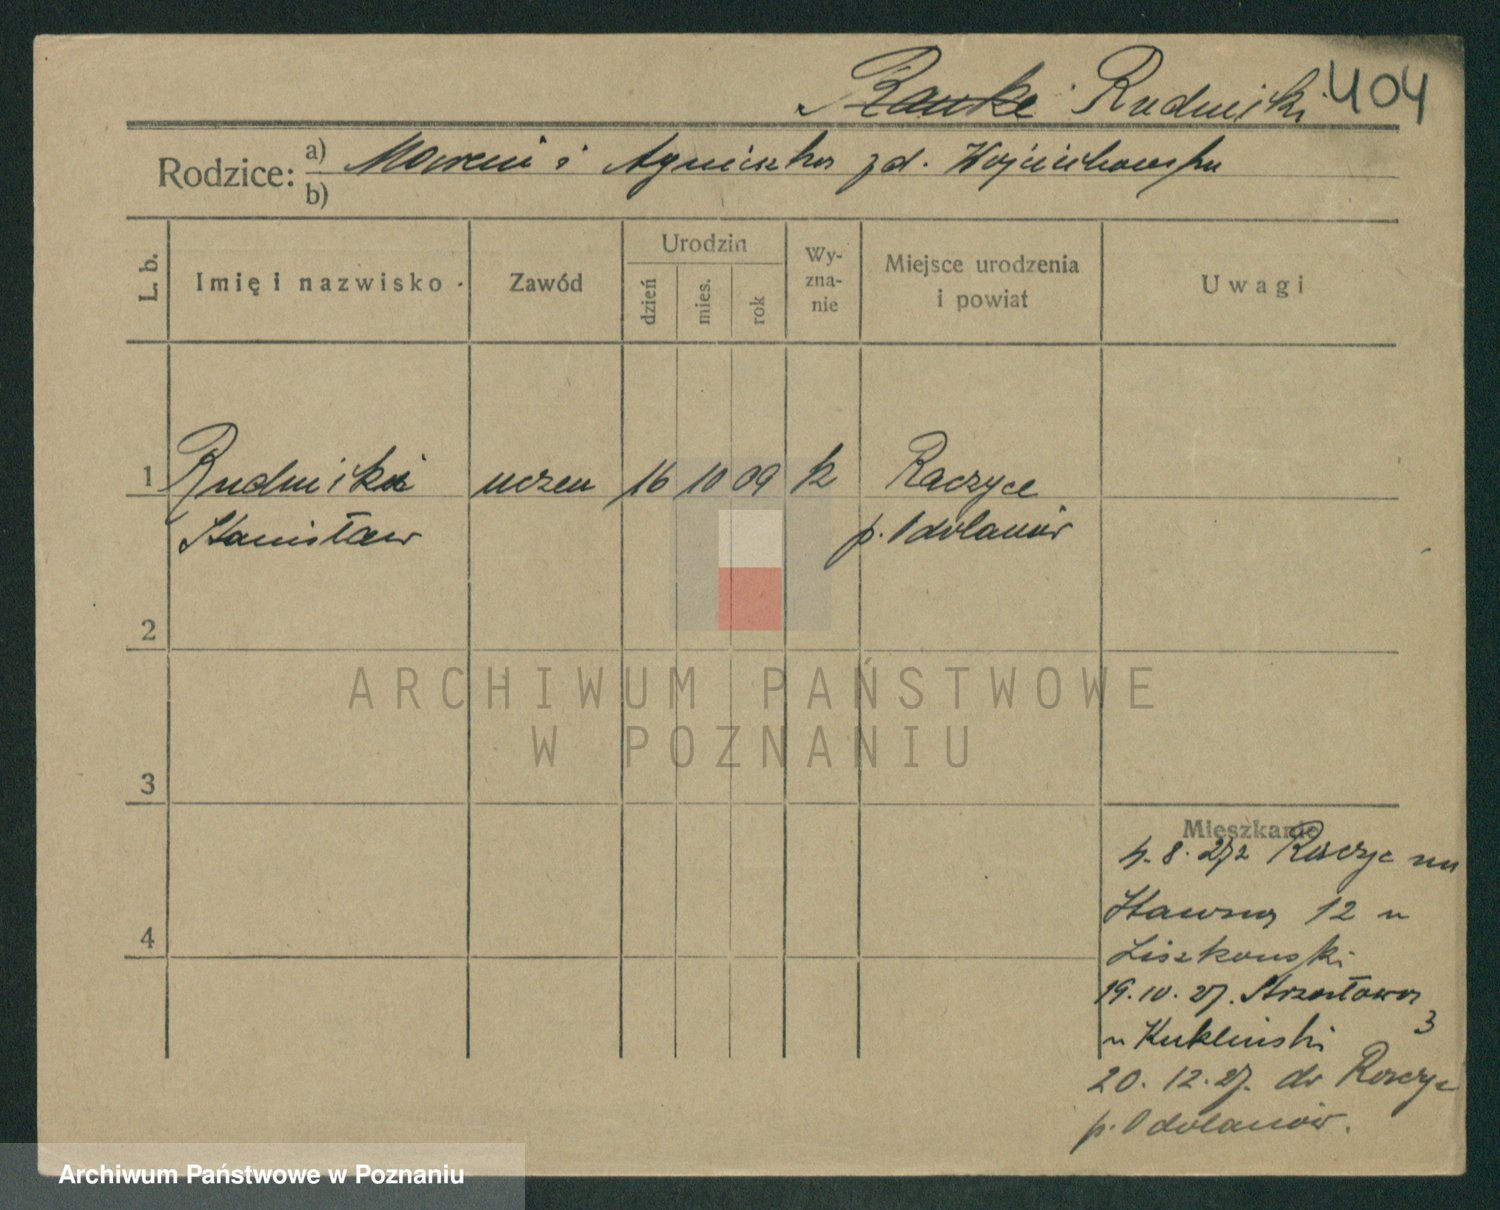 Ranke Rudnicki 404
Rodzice: a) Marcin i Agnieszka zd. Wojciechowska
b)
L. b. Imię i nazwisko Zawód Urodzin dzień mies. rok Wy-zna-nie Miejsce urodzenia i powiat Uwagi
1 Rudnicki uczeń 16 10 09 k Raczyce
Stanisław p. Odolanów
2
3
4
Mieszkanie
8. Raczyc
12 u
Liszkowski
19.10.27. Strzałowa 3
u Kukliński
20.12.27. do Raczyc
p. Odolanów.
ARCHIWUM PAŃSTWOWE
W POZNANIU
Archiwum Państwowe w Poznaniu